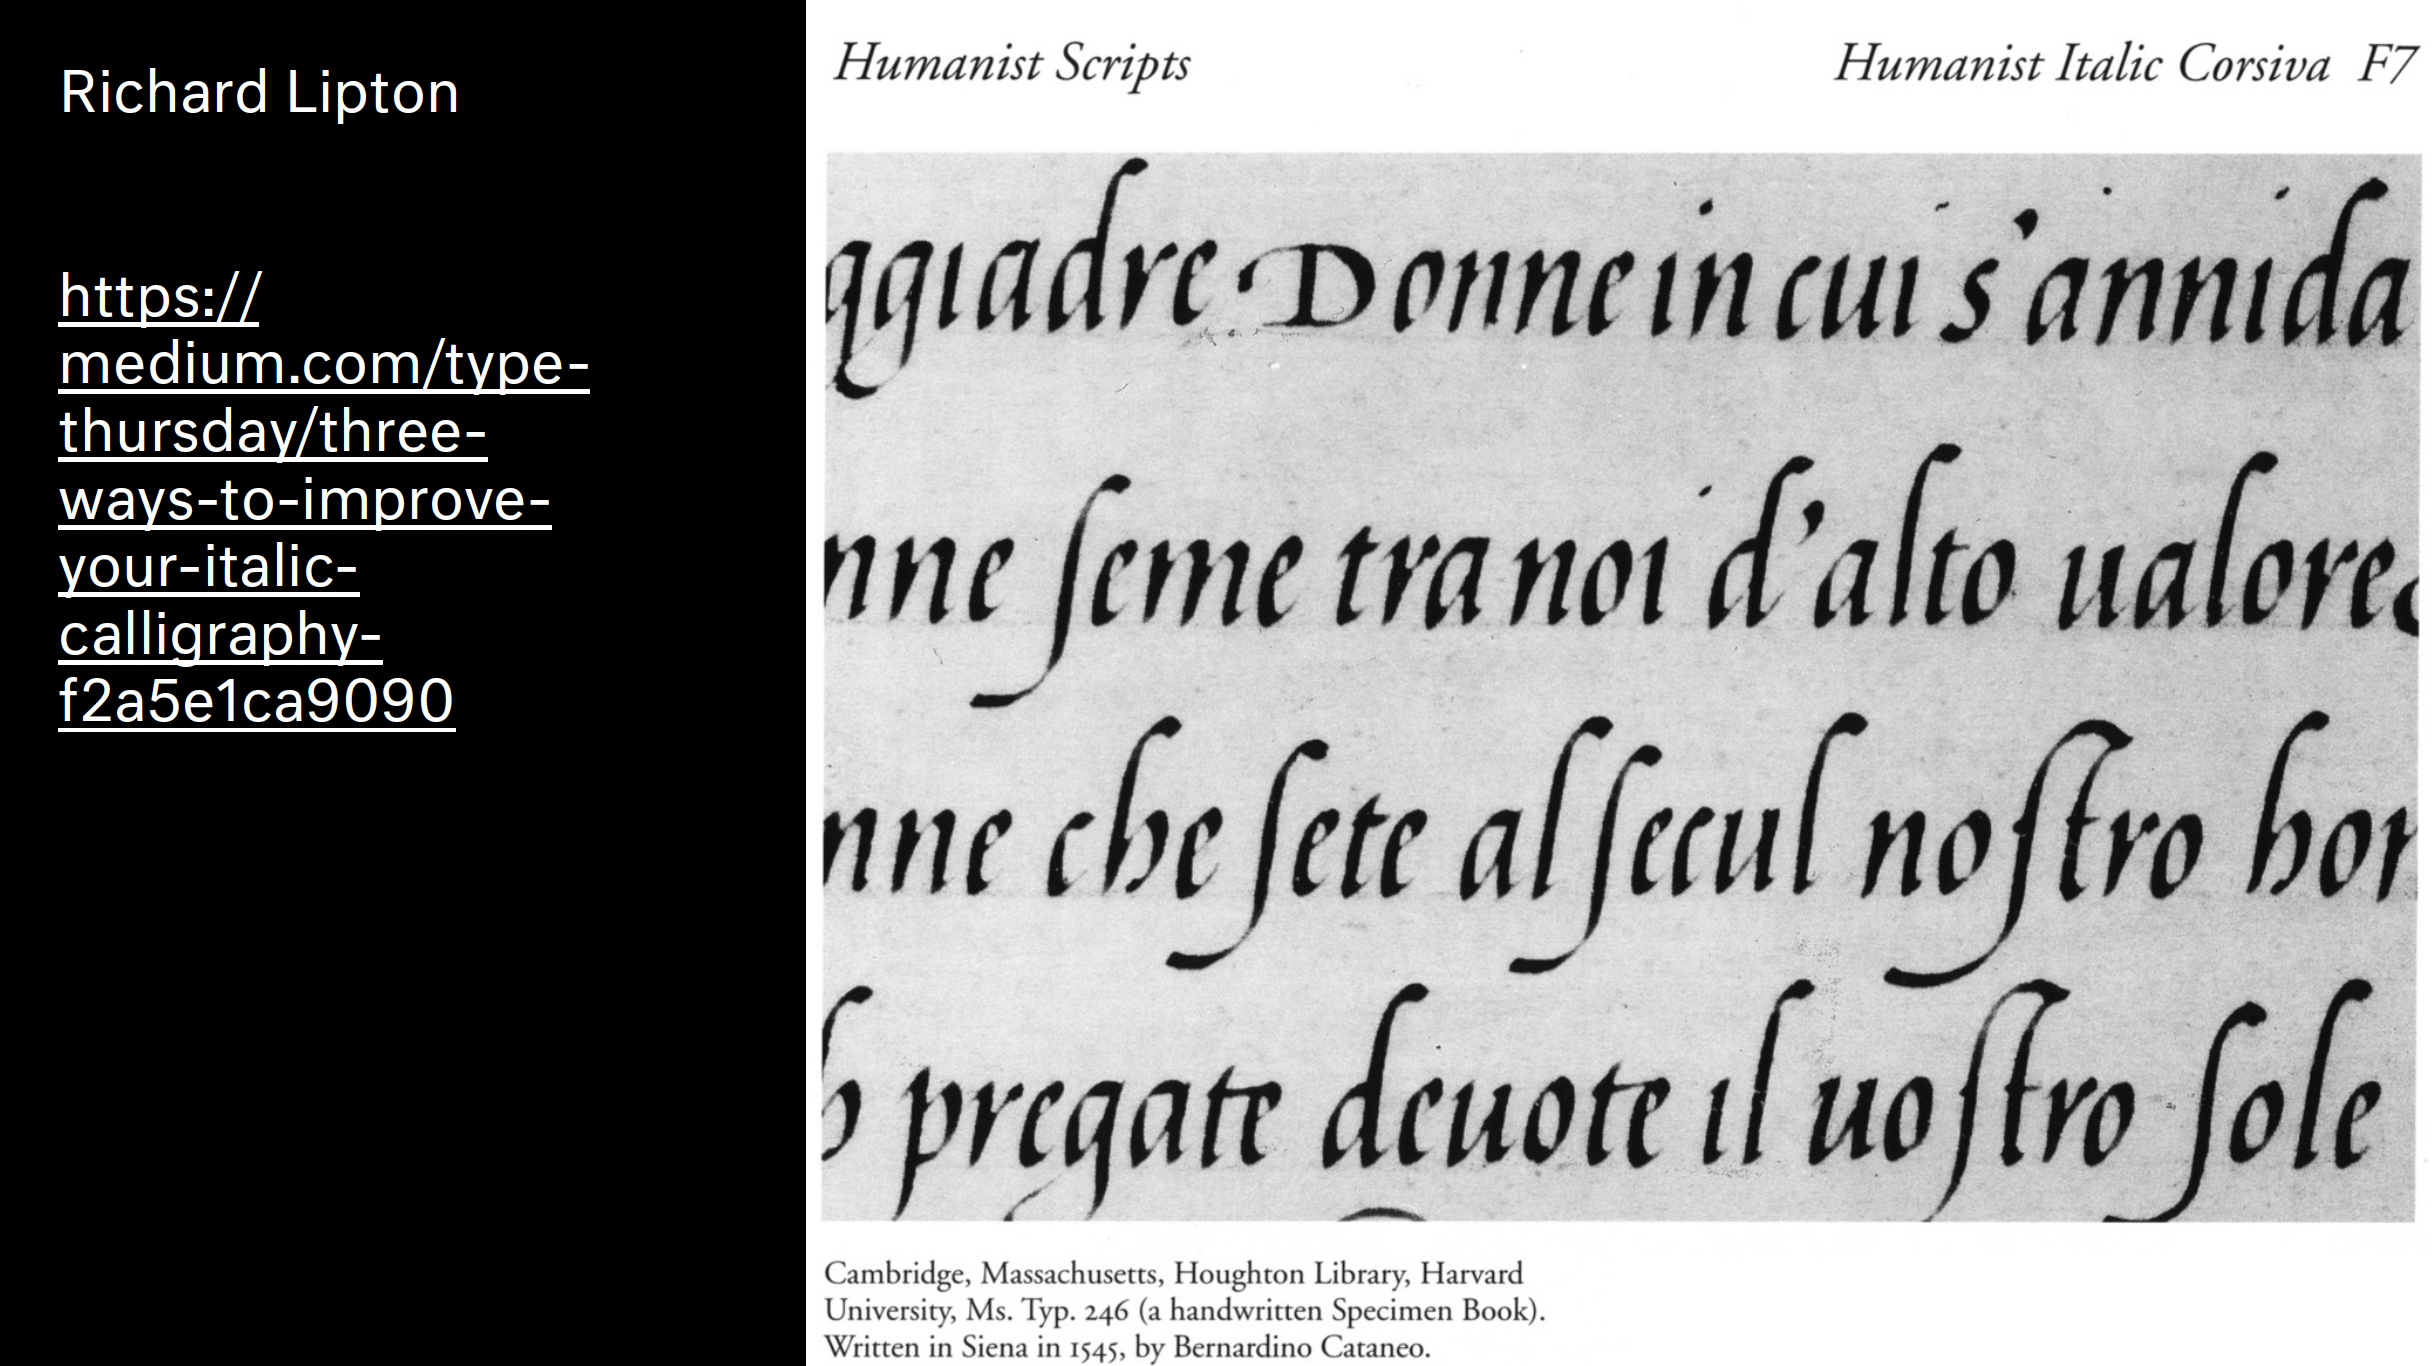 Richard Lipton
https://
medium.com/type-
thursday/three-
ways-to-improve-
your-italic-
calligraphy-
f2a5e1ca9090
Humanist Scripts
Humanist Italic Corsiva F7
ggiadre · Donne in cui s'annida
nne ſeme tra noi d'alto ualore
nne che ſete al ſecul noſtro hon
pregate deuote il uoſtro ſole
Cambridge, Massachusetts, Houghton Library, Harvard
University, Ms. Typ. 246 (a handwritten Specimen Book).
Written in Siena in 1545, by Bernardino Cataneo.